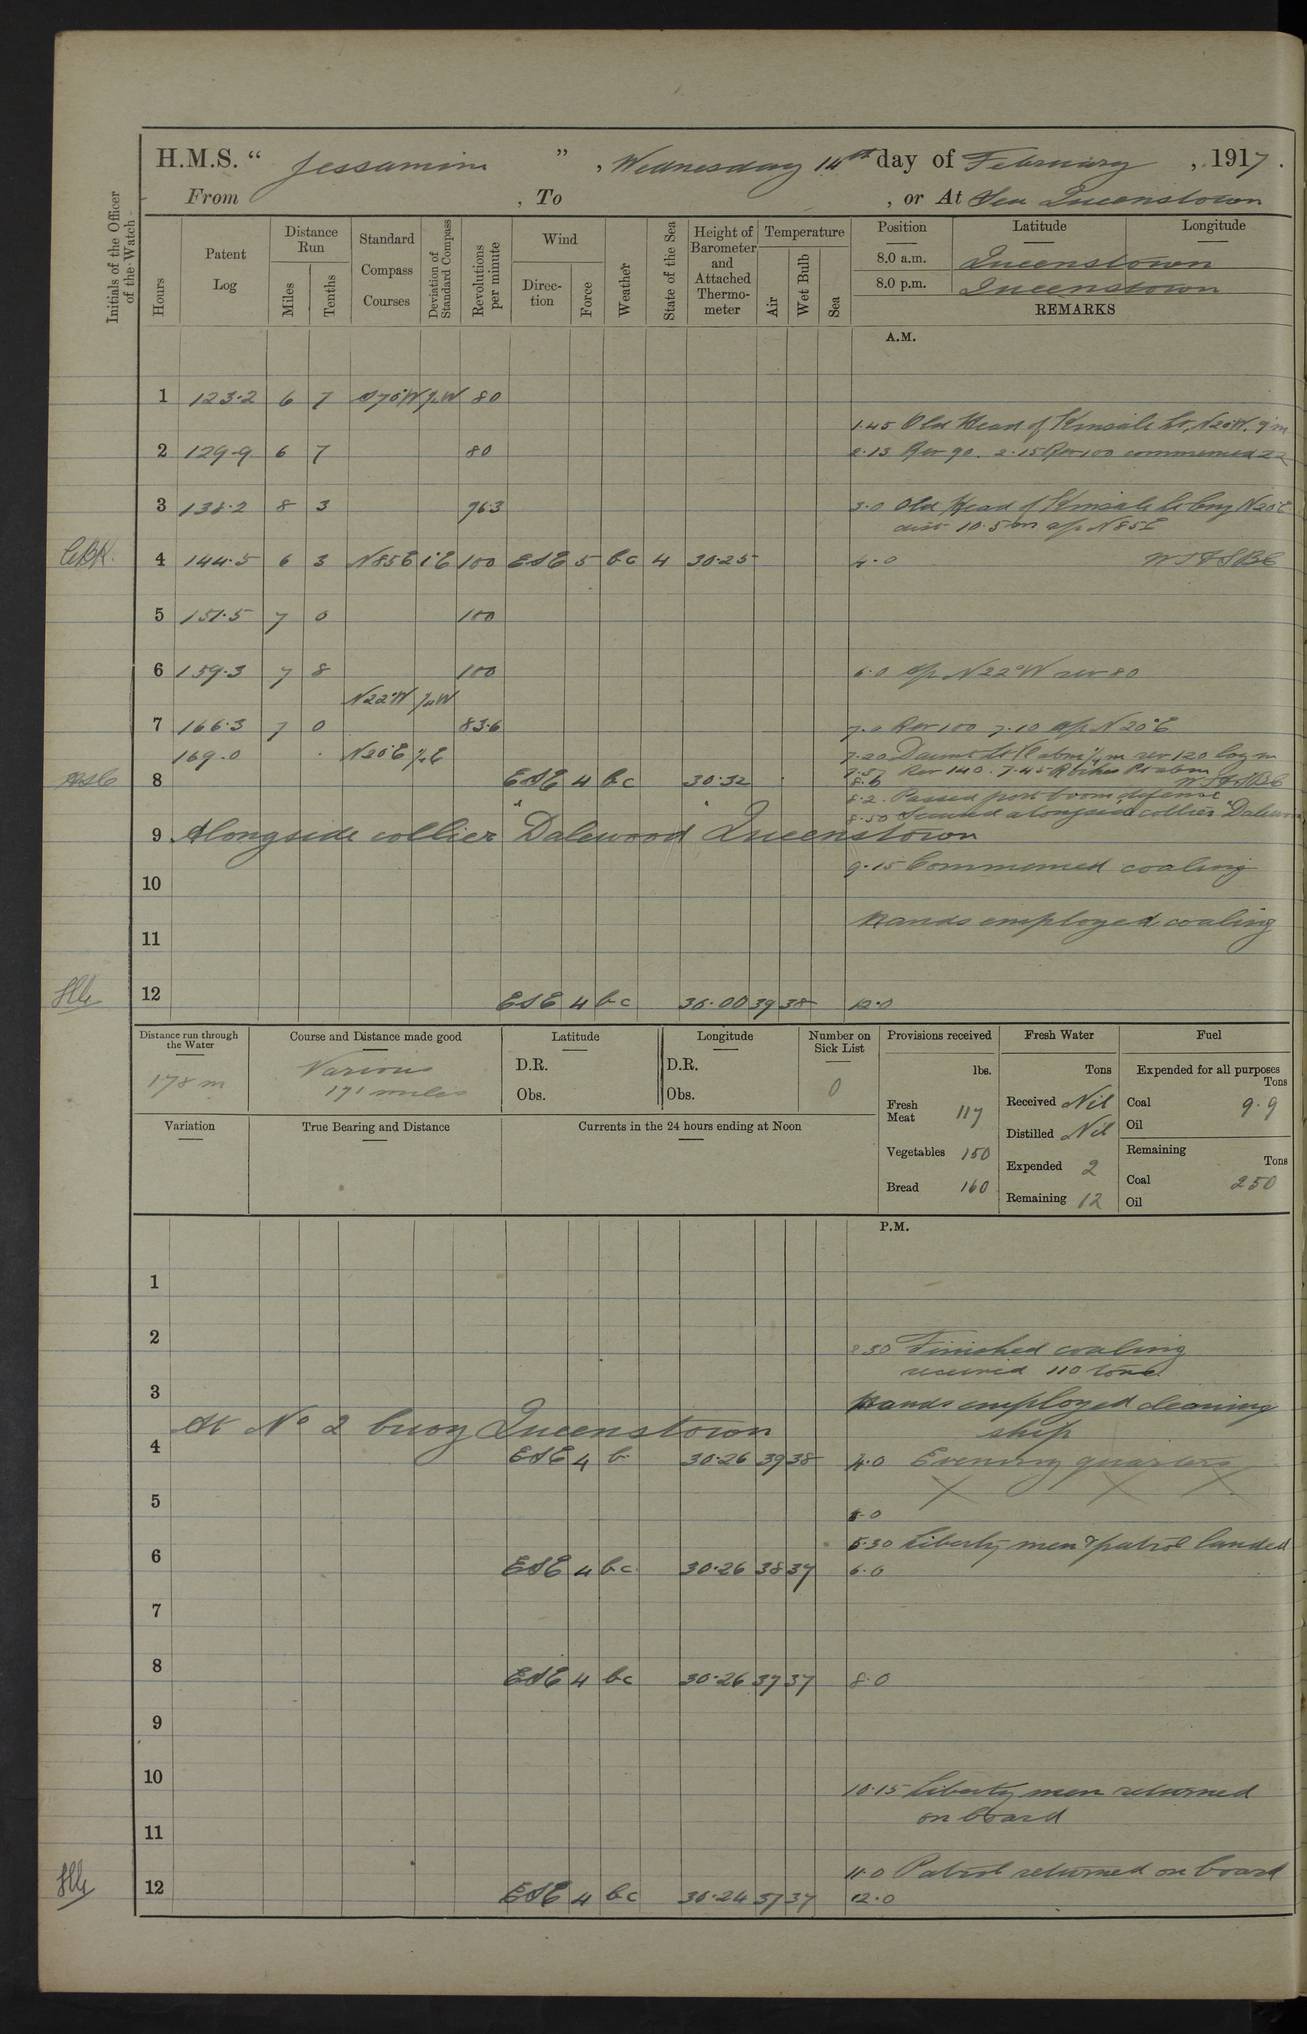 H.M.S. " Jessamine ", Wednesday 14th day of February, 1917.
From , To , or At Sea Queenstown
Initials of the Officer of the Watch
Hours
Patent Log
Distance Run
Miles
Tenths
Standard Compass Courses
Deviation of Standard Compass
Revolutions per minute
Wind
Direction
Force
Weather
State of the Sea
Height of Barometer and Attached Thermometer
Temperature
Air
Wet Bulb
Sea
Position Latitude Longitude
8.0 a.m. Queenstown
8.0 p.m. Queenstown
REMARKS
A.M.
1 123.2 6 7 S70°W 80
1.45 Old Head of Kinsale Lt, N20°W. 9'm
2 129.9 6 7 80 2.13 Rev 90. 2.15 Rev 100 commenced ZZ
3 138.2 8 3 96.3 3.0 Old Head of Kinsale Lt brg N20°E
dist 10.5m a/c N85E
4 144.5 6 3 N85E 1°E 100 ESE 5 bc 4 30.25 4.0
5 151.5 7 0 100
6 159.3 7 8 100 6.0 a/c N22°W rev 80
N22°W
7 166.3 7 0 83.6 7.0 Rev 100 7.10 a/c N20°E
169.0 N20°E 7.20 Daunts Lt V abm rev 120 log in
8 ESE 4 bc 30.32 Rev 140. 7.45
8.2. Passed port boom defense
8.50 Secured alongside collier "Dalewood
9 Alongside collier "Dalewood" Queenstown
9.15 Commenced coaling
10
Hands employed coaling
11
12 ESE 4 bc 30.00 39 38 12.0
Distance run through the Water
178 m
Course and Distance made good
Various
171 miles
Latitude
D.R.
Obs.
Longitude
D.R.
Obs.
Number on Sick List
0
Provisions received
lbs.
Fresh Meat 117
Vegetables 150
Bread 160
Fresh Water
Tons
Received Nil
Distilled Nil
Expended 2
Remaining 12
Fuel
Expended for all purposes
Tons
Coal 9.9
Oil
Remaining
Tons
Coal 250
Oil
Variation
True Bearing and Distance
Currents in the 24 hours ending at Noon
P.M.
1
2
30 Finished coaling
received 110 tons.
3
Hands employed cleaning
ship
At No 2 buoy Queenstown
4 ESE 4 b 30.26 39 38 4.0 Evening quarters
5
5.30 Liberty men & patrol landed
6 ESE 4 bc 30.26 38 37 6.0
7
8 ESE 4 bc 30.26 37 37 8.0
9
10 10.15 Liberty men returned
on board
11
11.0 Patrol returned on board
12 ESE 4 bc 30.24 37 37 12.0